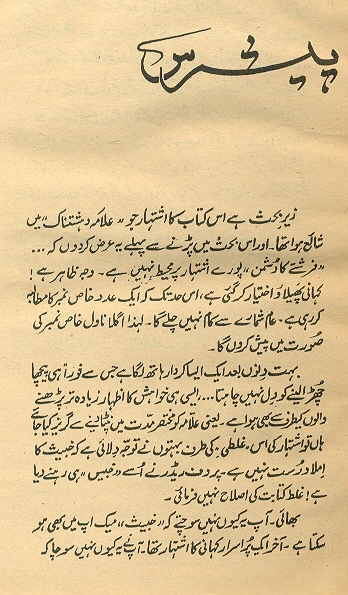 پیشرس
زیرِ بحث ہے اس کتاب کا اشتہار جو "علامہ دہشتناک" میں
شائع ہوا تھا۔ اور اس بحث میں پڑنے سے پہلے یہ عرض کر دوں کہ ...
"فرشتے کا دشمن" پورے اشتہار پر محیط نہیں ہے۔ وجہ ظاہر ہے!
کہانی پھیلاؤ اختیار کر گئی ہے، اس حد تک کہ ایک عدد خاص نمبر کا مطالبہ
کر رہی ہے۔ عام شمارے سے کام نہیں چلے گا۔ لہٰذا اگلا ناول خاص نمبر کی
صورت میں پیش کروں گا۔
بہت دنوں بعد ایک ایسا کردار ہاتھ لگا ہے جس سے فوراً ہی پیچھا
چھڑا لینے کو دل نہیں چاہتا ... ایسی ہی خواہش کا اظہار زیادہ تر پڑھنے
والوں کیطرف سے بھی ہوا ہے۔ یعنی علامہ کو مختصر مدت میں نپٹانے سے گریز کیا جائے
ہاں تو اشتہار کی اس "غلطی" کی طرف بہتوں نے توجہ دلائی ہے کہ خبیث کا
املا درست نہیں ہے۔ پروف ریڈر نے اُسے "خبیس" ہی رہنے دیا
ہے! غلط کتابت کی اصلاح نہیں فرمائی۔
بھائی۔ آپ یہ کیوں نہیں سوچتے کہ "خبیث" میک اپ میں بھی ہو
سکتا ہے۔ آخر ایک پُراسرار کہانی کا اشتہار تھا۔ آپ نے یہ کیوں نہیں سوچا کہ